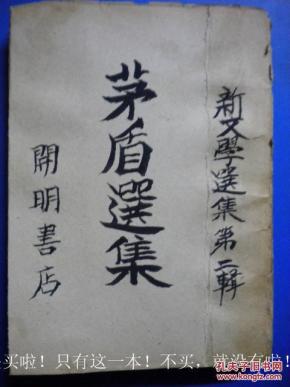 新文學選集第二輯
茅盾選集
開明書店
买啦！只有这一本！不买，就没有啦！
孔夫子旧书网